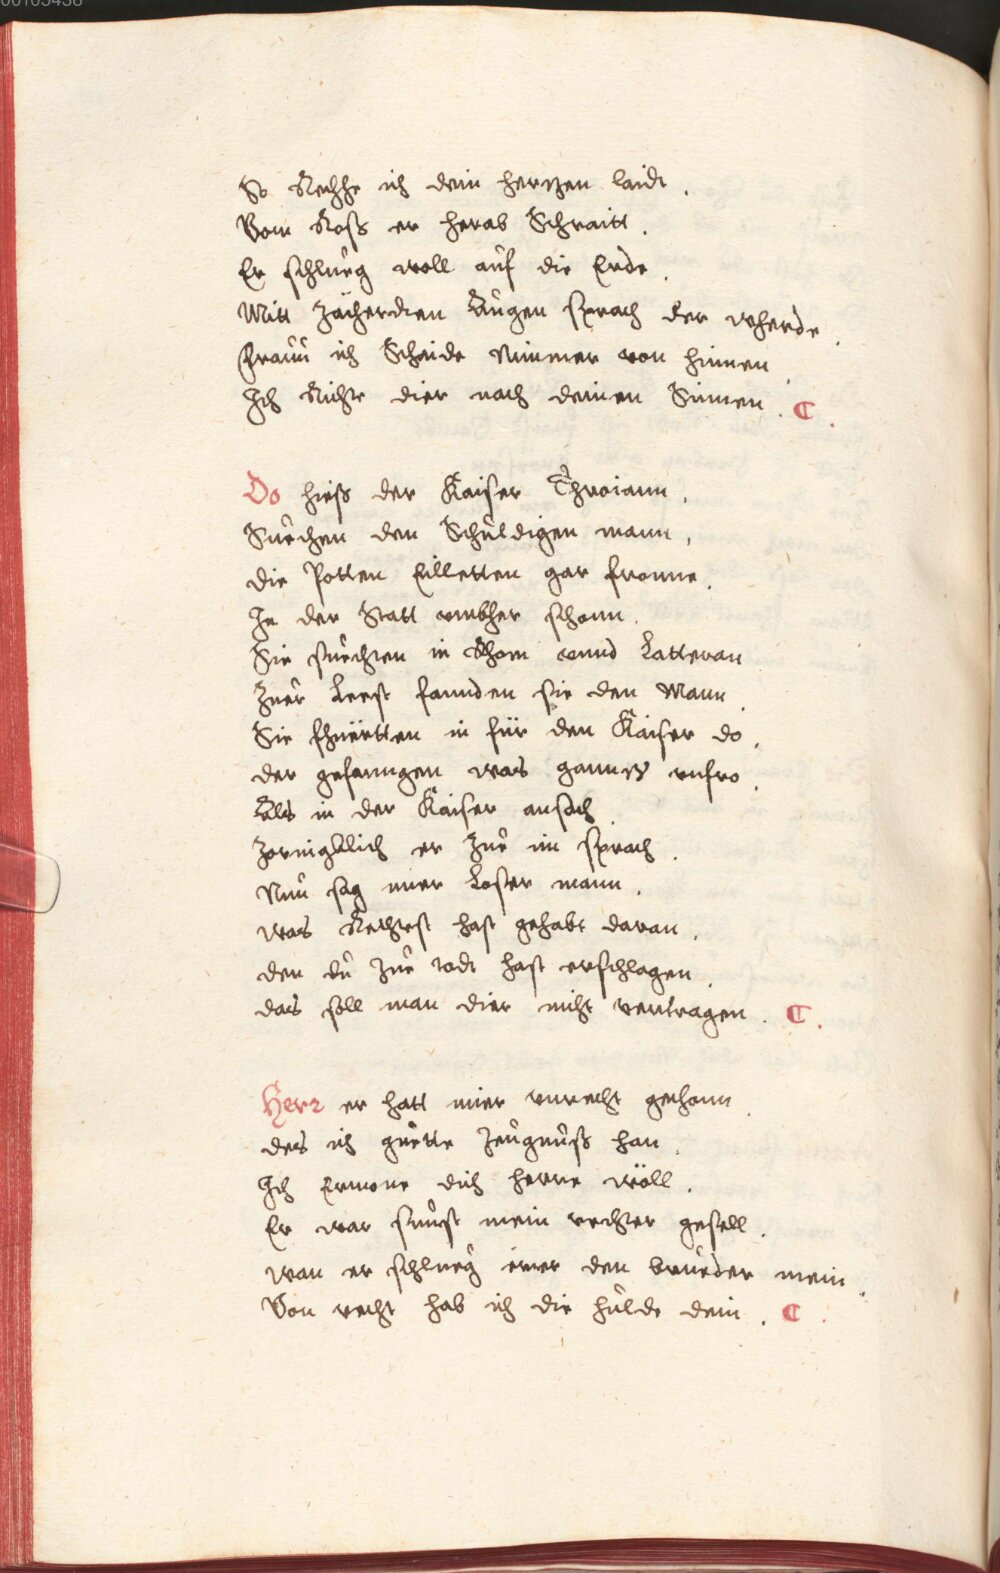 00103438
So Rechhe ich dein hertzen laidt .
Vom Roß er herab Schraitt .
Er schlueg woll auf die Erde .
Mitt zächerdten Augen sprach der wherde .
Frauw ich Schaide Nimmer von hinnen .
Ich Richte dier nach deinen Sinnen . C .
Do hieß der Kaiser Throiann .
Suechen den Schuldigen mann ,
die Potten Eilletten gar fronne .
In der Statt vmbher schonn .
Sie suechten in Rhom vnnd Latteran
Zuer Leest fannden sie den Mann .
Sie fhuërtten in für den Kaiser do .
der gefanngen was ganntz vnfro .
Als in der Kaiser ansach .
Zornigklich er Zue im sprach .
Nun sag mier Loser mann .
was Rechtest hast gehabt daran .
den du Zue todt hast erschlagen .
das soll man dier nicht vertragen . C .
Herr er hatt mier vnrecht gethonn .
des ich guette Zeugnuß han .
Ich Ermone dich herre wöll .
Er war sunst mein rechter gesell .
wan er schlueg ëmer den brueder mein .
Von recht hab ich die hulde dein . C .